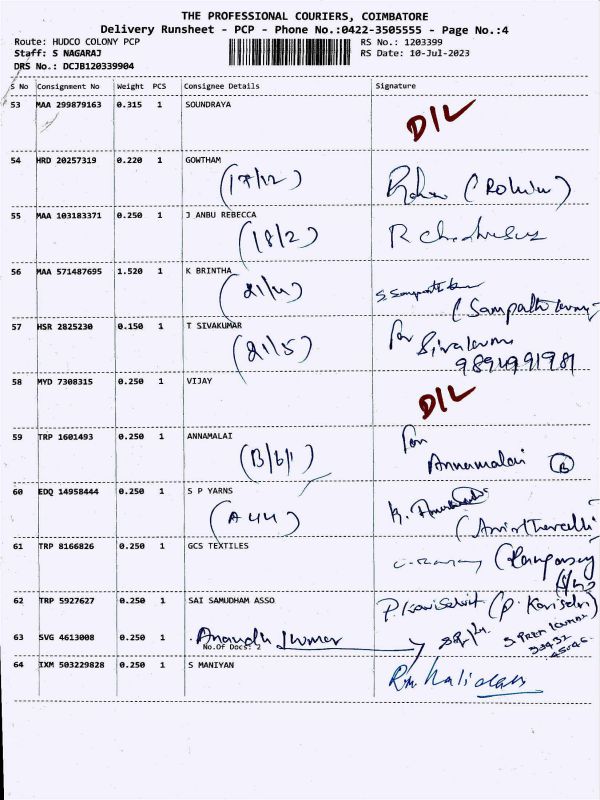 THE PROFESSIONAL COURIERS, COIMBATORE
Delivery Runsheet - PCP - Phone No.:0422-3505555 - Page No.:4
Route: HUDCO COLONY PCP
RS No.: 1203399
Staff: S NAGARAJ
RS Date: 10-Jul-2023
DRS No.: DCJB120339904
S No Consignment No Weight PCS Consignee Details Signature
53 MAA 299879163 0.315 1 SOUNDRAYA
D/L
54 HRD 20257319 0.220 1 GOWTHAM
(17/12)
55 MAA 103183371 0.250 1 J ANBU REBECCA
(18/2)
56 MAA 571487695 1.520 1 K BRINTHA
(21/4)
(Sampath kumar)
57 HSR 2825230 0.150 1 T SIVAKUMAR
(21/5)
for
9894991981
58 MYD 7308315 0.250 1 VIJAY
D/L
59 TRP 1601493 0.250 1 ANNAMALAI
(B/6/1)
for
Annamalai B
60 EDQ 14958444 0.250 1 S P YARNS
(A44)
61 TRP 8166826 0.250 1 GCS TEXTILES
62 TRP 5927627 0.250 1 SAI SAMUDHAM ASSO
(P. Kaviselvi)
63 SVG 4613008 0.250 1 Anandh kumar
No.Of Docs: 2
64 IXM 503229828 0.250 1 S MANIYAN